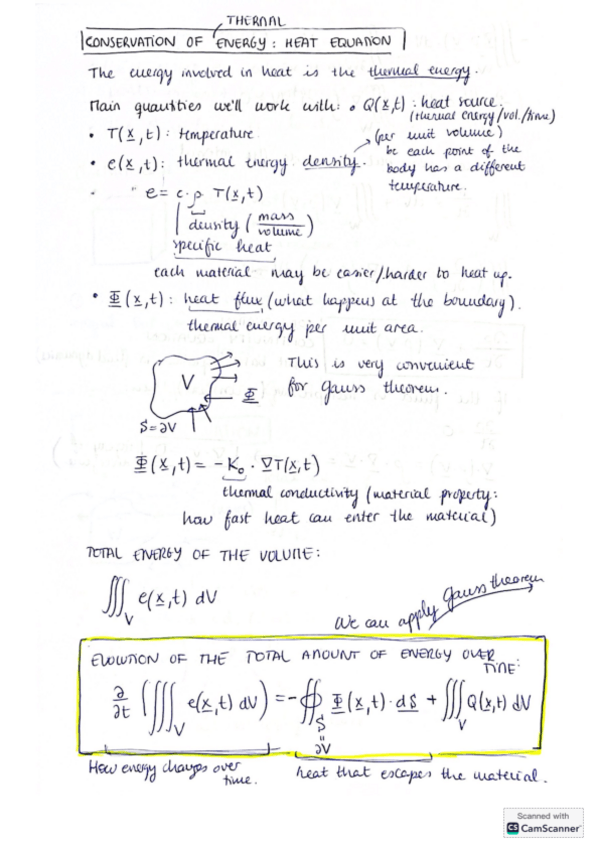 THERMAL
CONSERVATION OF ENERGY: HEAT EQUATION
The energy involved in heat is the thermal energy.
Main quantities we'll work with: • Q(x,t): heat source.
(thermal energy/vol./time)
• T(x,t): temperature.
(per unit volume)
• e(x,t): thermal energy density.
bc each point of the
body has a different
temperature.
e = c·ρ T(x,t)
density (mass/volume)
specific heat
each material may be easier/harder to heat up.
• Φ(x,t): heat flux (what happens at the boundary).
thermal energy per unit area.
V
Φ
S=∂V
This is very convenient
for gauss theorem.
Φ(x,t) = -K₀ · ∇T(x,t)
thermal conductivity (material property:
how fast heat can enter the material)
TOTAL ENERGY OF THE VOLUME:
∭_V e(x,t) dV
We can apply Gauss theorem
EVOLUTION OF THE TOTAL AMOUNT OF ENERGY OVER
TIME:
∂/∂t (∭_V e(x,t) dV) = -∯_S Φ(x,t)·dS + ∭_V Q(x,t) dV
=
∂V
How energy changes over
time.
heat that escapes the material.
Scanned with
CS CamScanner